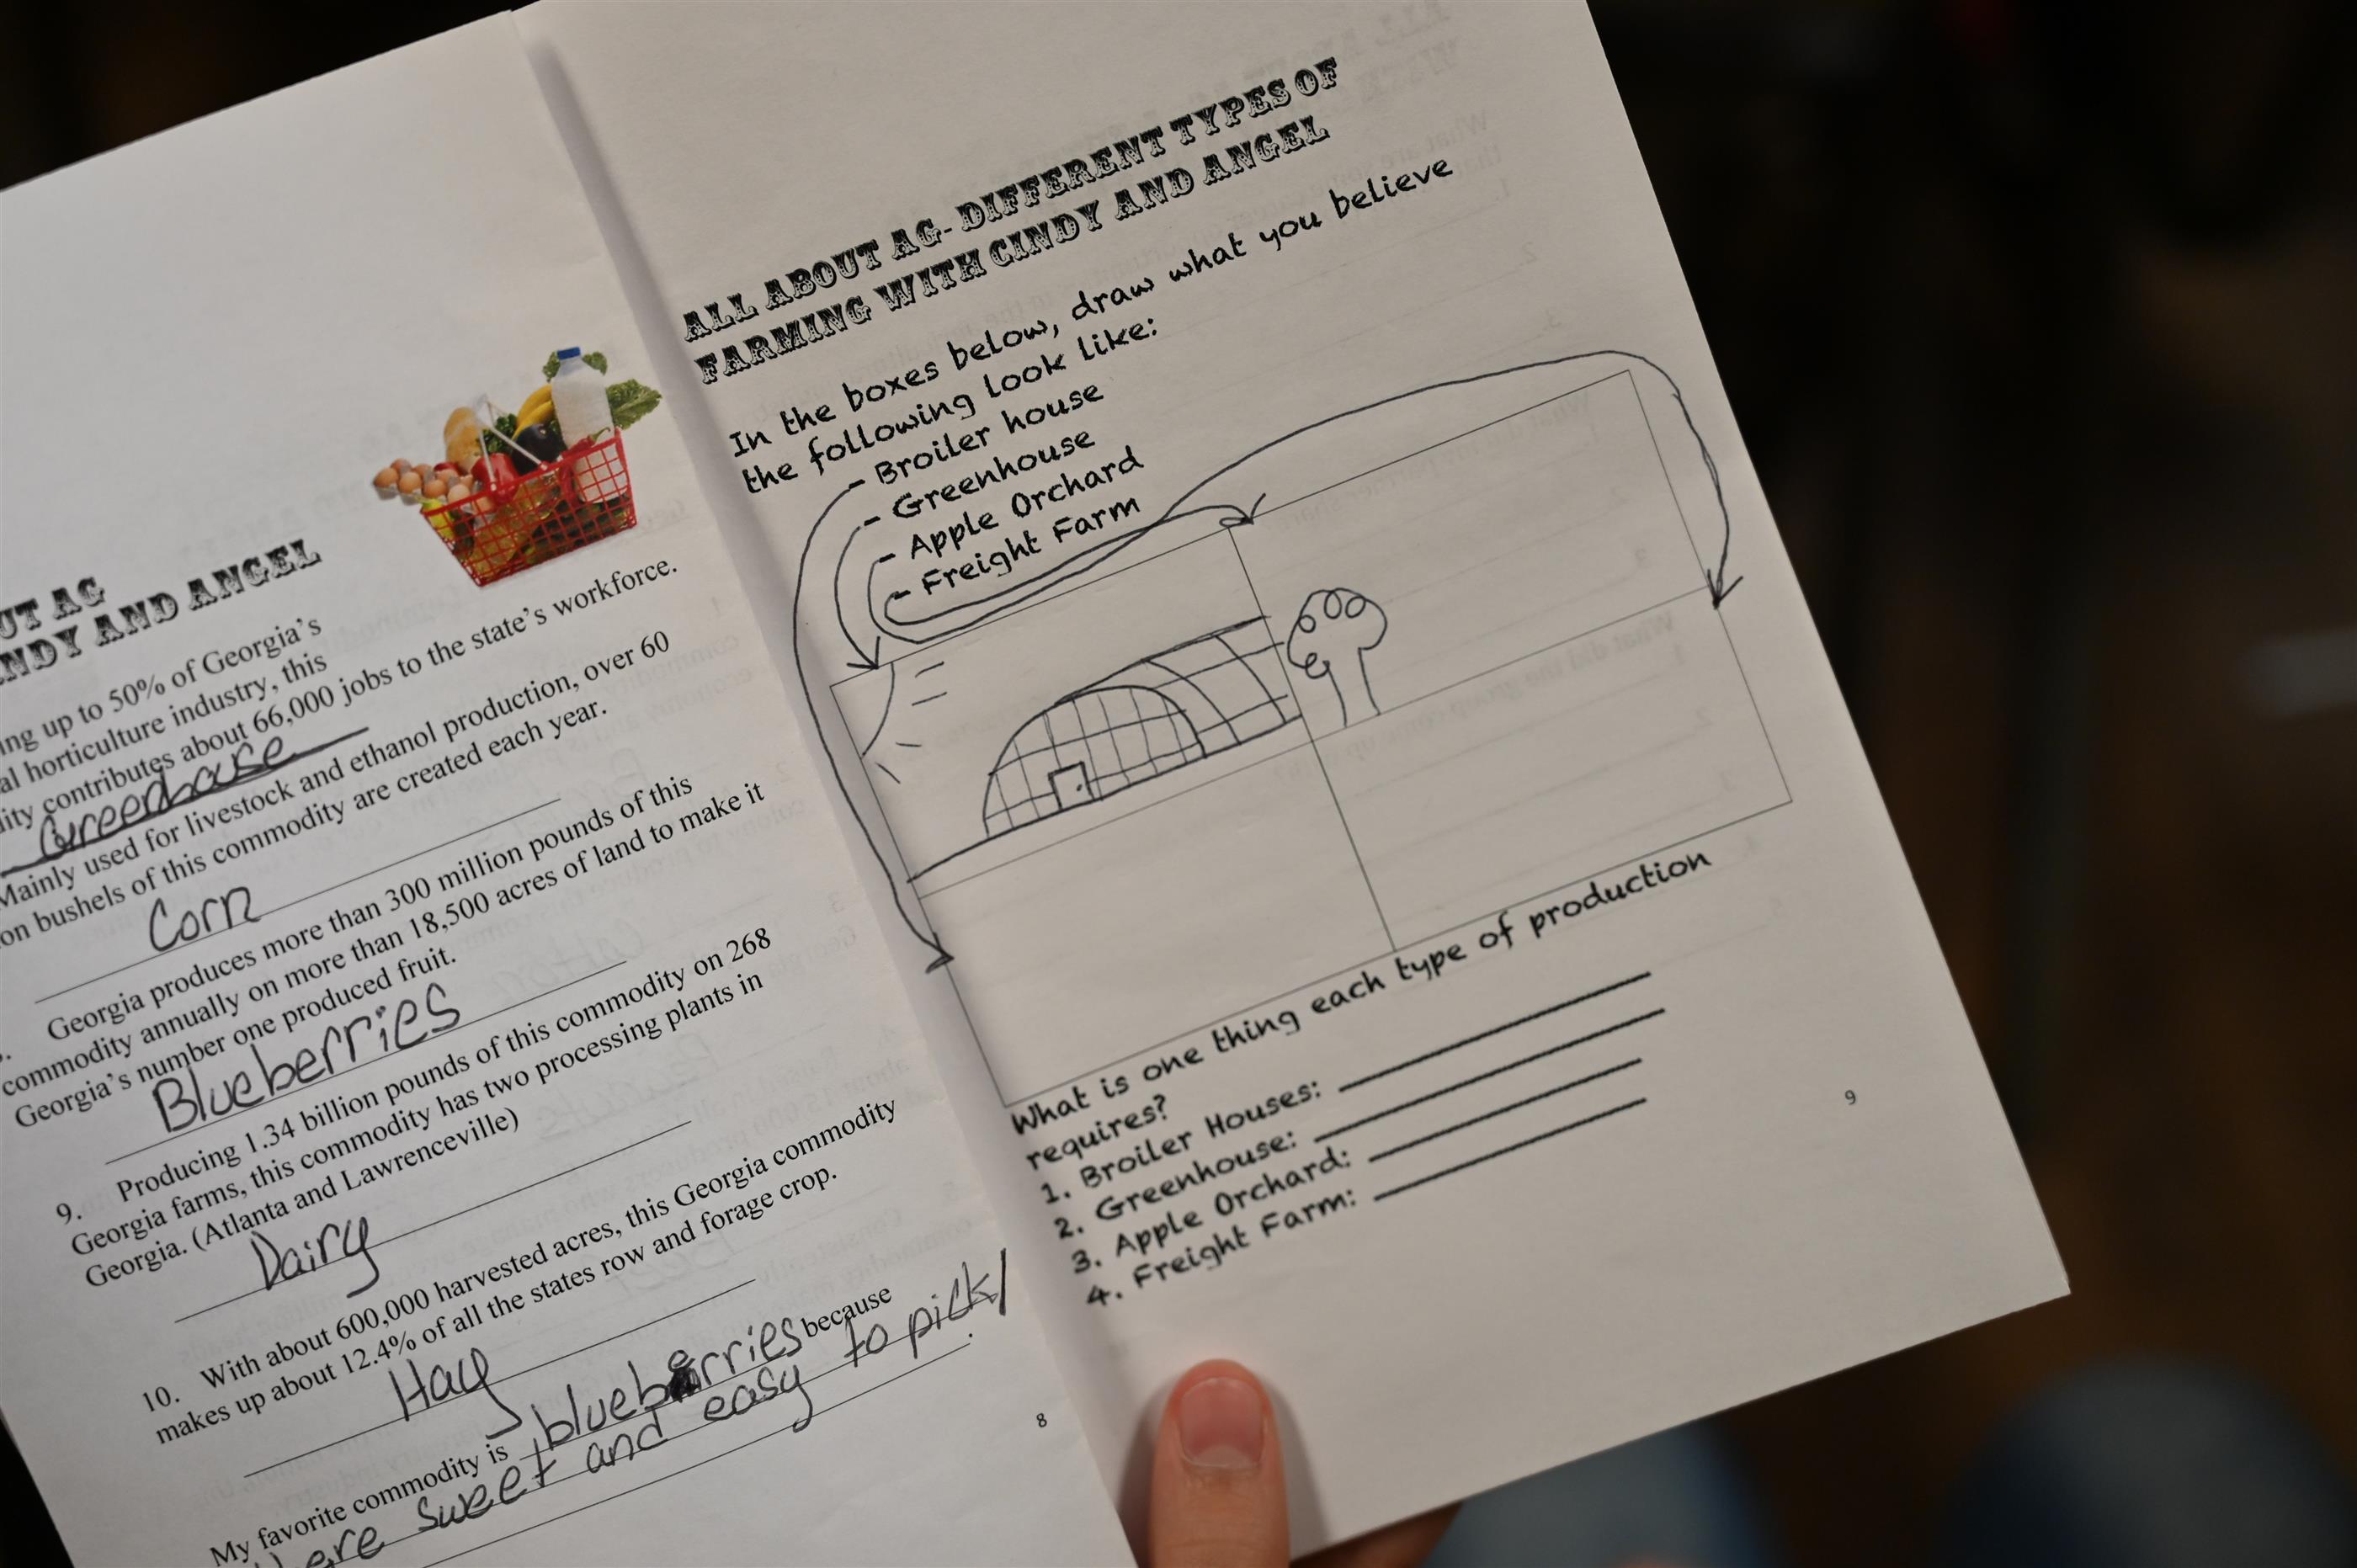 UT AG
NDY AND ANGEL
ing up to 50% of Georgia's
al horticulture industry, this
lity contributes about 66,000 jobs to the state's workforce.
Greenhouse
Mainly used for livestock and ethanol production, over 60
on bushels of this commodity are created each year.
Corn
Georgia produces more than 300 million pounds of this
commodity annually on more than 18,500 acres of land to make it
Georgia's number one produced fruit.
Blueberries
9. Producing 1.34 billion pounds of this commodity on 268
Georgia farms, this commodity has two processing plants in
Georgia. (Atlanta and Lawrenceville)
Dairy
10. With about 600,000 harvested acres, this Georgia commodity
makes up about 12.4% of all the states row and forage crop.
Hay
My favorite commodity is blueberries because
sweet and easy to pick
8
ALL ABOUT AG- DIFFERENT TYPES OF
FARMING WITH CINDY AND ANGEL
In the boxes below, draw what you believe
the following look like:
- Broiler house
- Greenhouse
- Apple Orchard
- Freight Farm
What is one thing each type of production
requires?
1. Broiler Houses:
2. Greenhouse:
3. Apple Orchard:
4. Freight Farm:
9